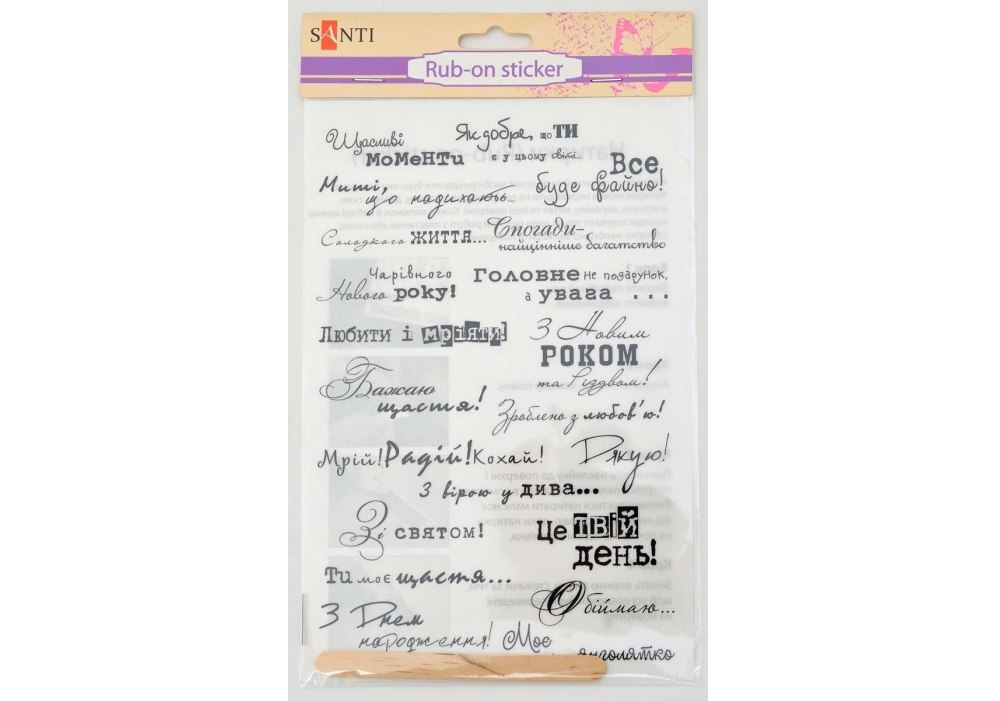 SANTI
Rub-on sticker
Щасливі
МоМеНТи
Як добре, що ТИ
є у цьому світі..
Миті,
що надихають...
Все
буде файно!
Солодкого ЖИТТЯ...
Спогади-
найцінніше багатство
Чарівного
Нового року!
Головне не подарунок,
а увага ...
Любити і мріяти!
З Новим
РОКОМ
та Різдвом!
Бажаю
щастя!
Зроблено з любов'ю!
Мрій! Радій! Кохай!
Дякую!
З вірою у дива...
Зі святом!
Це ТВІЙ
день!
Ти моє щастя...
Обіймаю...
З Днем
народження!
Моє
янголятко